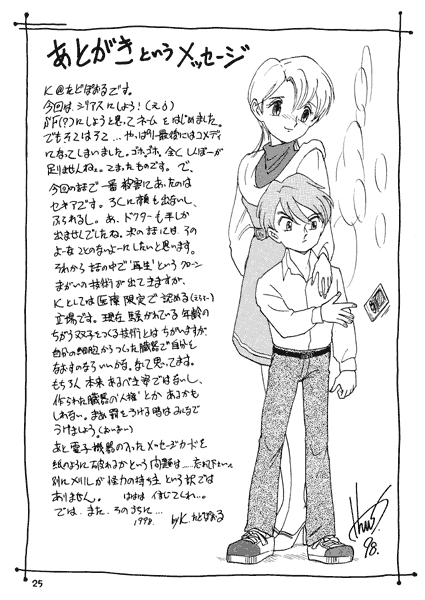 あとがきというメッセージ
K@たどぽおるです。
今回は、シリアスにしよう!(え゛)
ド F(?)にしようと思ってネームをはじめました。
でもそこはそこ…やっぱり最後にはコメディ
になってしまいました。ゴホゴホ、全くしんぼーが
足りませんねぇ。こまったものです。で、
今回の話で一番被害にあったのは
セキアです。ろくに顔も出ないし、
ふられるし。あ、ドクターも手しか
出ませんでしたね。次の話には、その
よーなことのないよーにしたいと思います。
それから話の中で"再生"というクローン
まがいの技術が出て来ますが、
Kとしては医療限定で認める
立場です。現在騒がれている年齢の
ちがう双子をつくる技術とはちがいますが、
自分の細胞からつくった臓器で自分を
なおすのならいいかな。なんて思ってます。
もちろん本来あるべき姿ではないし、
作られた臓器の"人権"とか、あるかも
しれない。まぁ罪をうける時はみなで
うけましょう。(おいおい)
あと電子機器の入ったメッセージカードを
紙のように破れるかという問題は……
別にメリルが怪力の持ち主という訳では
ありません。ははは 信じてくれ…。
では、また、そのうちに…
1998. by K.たどぽおる
98.
25